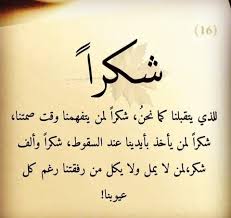 (16)
شكراً
للذي يتقبلنا كما نحنُ، شكراً لمن يتفهمنا وقت صمتنا،
شكراً لمن يأخذ بأيدينا عند السقوط، شكراً وألف
شكر،لمن لا يمل ولا يكل من رفقتنا رغم كل
عيوبنا!